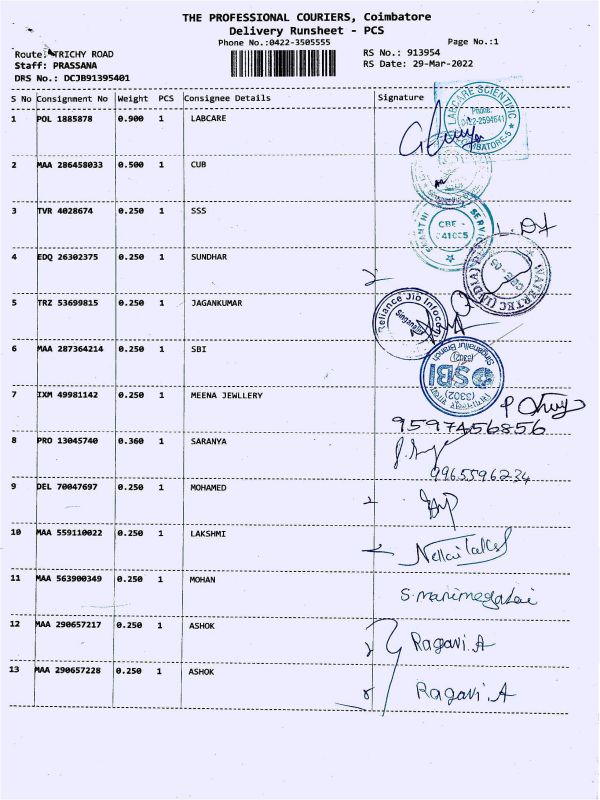 THE PROFESSIONAL COURIERS, Coimbatore
Delivery Runsheet - PCS
Phone No.:0422-3505555 Page No.:1
Route: TRICHY ROAD RS No.: 913954
Staff: PRASSANA RS Date: 29-Mar-2022
DRS No.: DCJB91395401
S No Consignment No Weight PCS Consignee Details Signature
1 POL 1885878 0.900 1 LABCARE
LABCARE SCIENTIFIC
Phone:
0422-2594641
COIMBATORE-5
2 MAA 286458033 0.500 1 CUB
3 TVR 4028674 0.250 1 SSS
CBE -
641005
4 EDQ 26302375 0.250 1 SUNDHAR
WATERTEC (INDIA)
5 TRZ 53699815 0.250 1 JAGANKUMAR
Reliance Jio Infocom
Singanallur
6 MAA 287364214 0.250 1 SBI
Singanallur Branch
SBI
7 IXM 49981142 0.250 1 MEENA JEWLLERY
9597456856
8 PRO 13045740 0.360 1 SARANYA
9965596234
9 DEL 70047697 0.250 1 MOHAMED
10 MAA 559110022 0.250 1 LAKSHMI
11 MAA 563900349 0.250 1 MOHAN
S.manimegalai
12 MAA 290657217 0.250 1 ASHOK Ragavi.A
13 MAA 290657228 0.250 1 ASHOK Ragavi.A